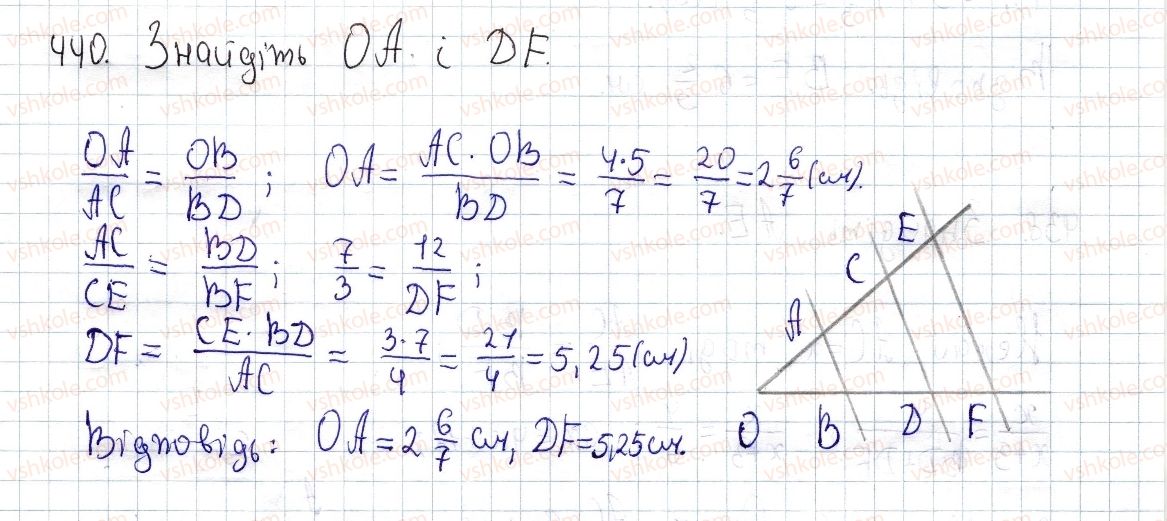 440. Знайдіть OA і DF.
OA/AC = OB/BD ; OA = AC·OB/BD = 4·5/7 = 20/7 = 2 6/7 (см).
AC/CE = BD/BF ; 7/3 = 12/DF ;
DF = CE·BD/AC = 3·7/4 = 21/4 = 5,25 (см)
Відповідь: OA = 2 6/7 см, DF = 5,25 см.
E
C
A
O B D F
vshkole.com